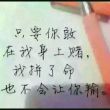 只要你敢
在我身上赌，
我拼了命
也不会让你输。